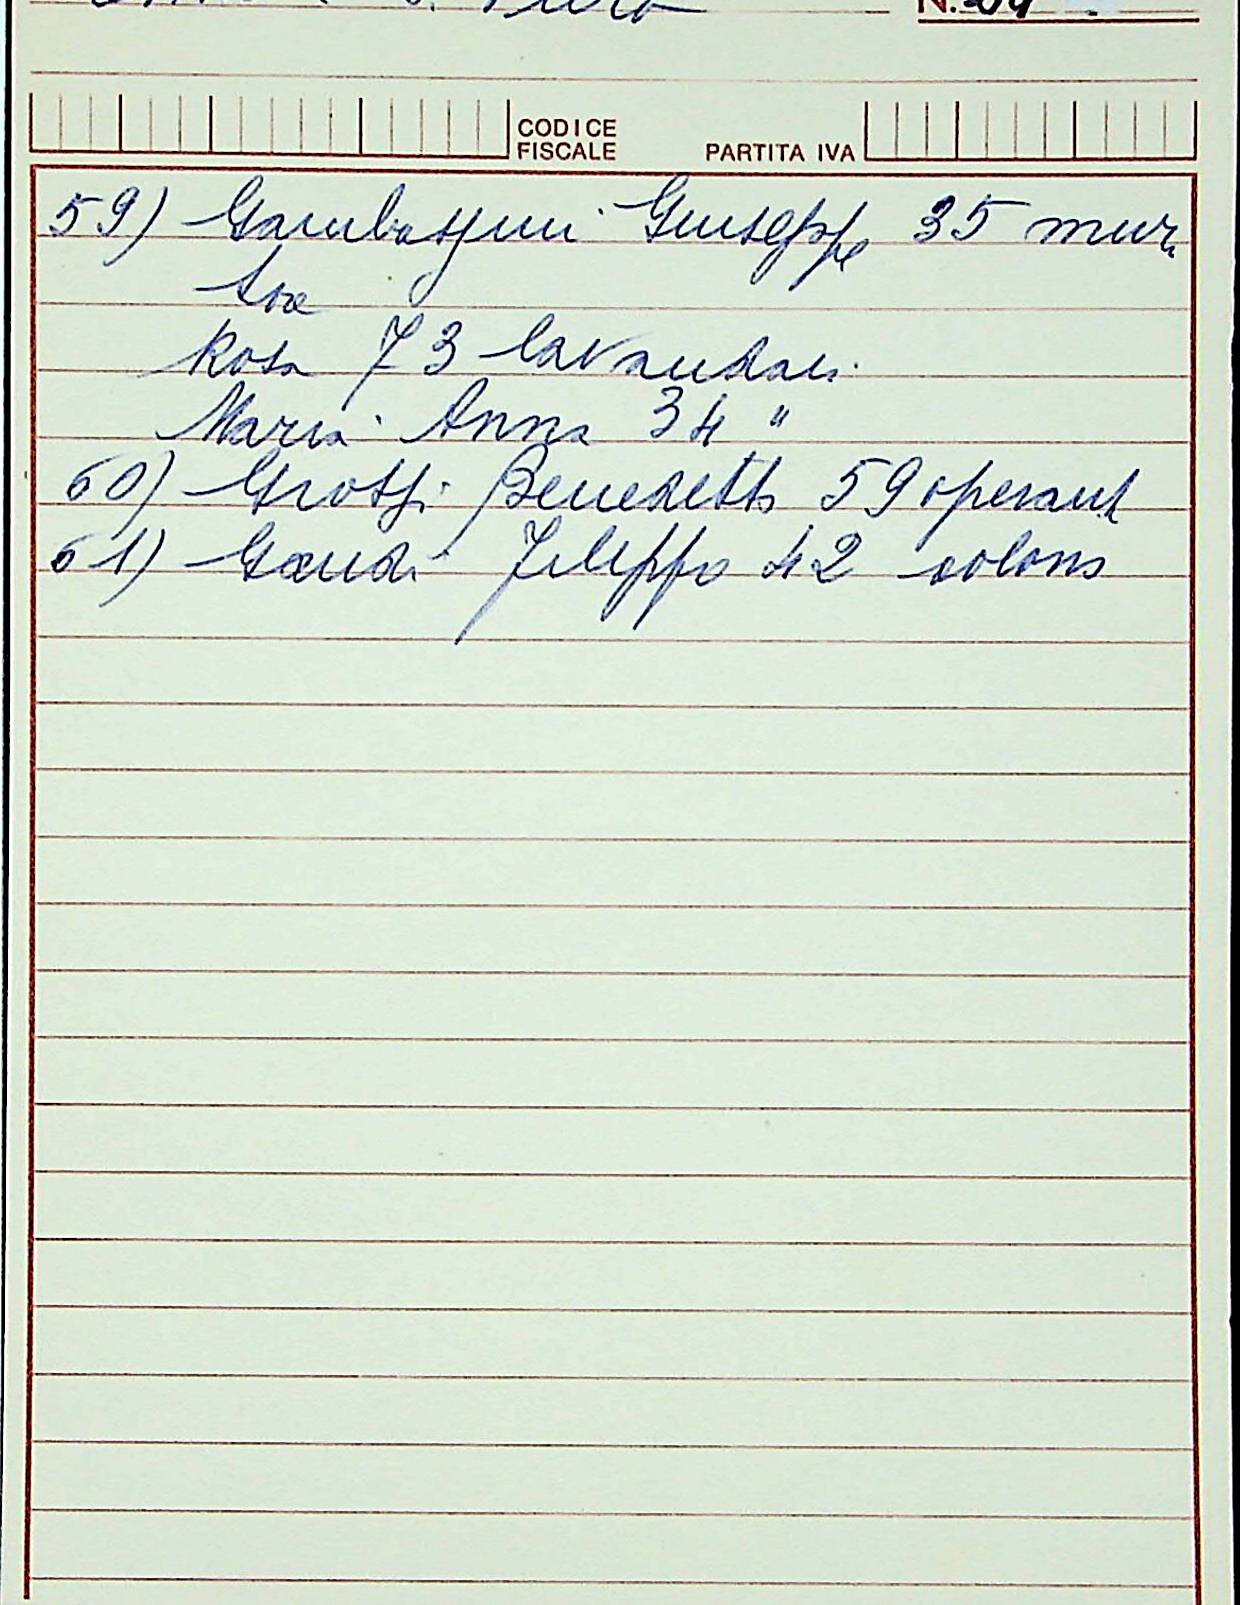 N. 04
CODICE FISCALE
PARTITA IVA
59) Giuseppe 35 mur.
Rosa 73 lavandaia.
Maria Anna 34 "
60) Grossi Benedetto 59 operant
61) Gandi Filippo 42 colono